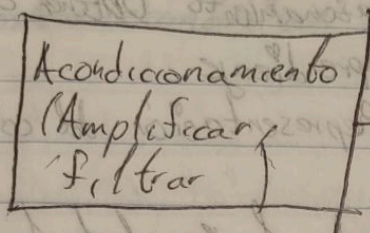 Acondicionamiento
(Amplificar,
filtrar )